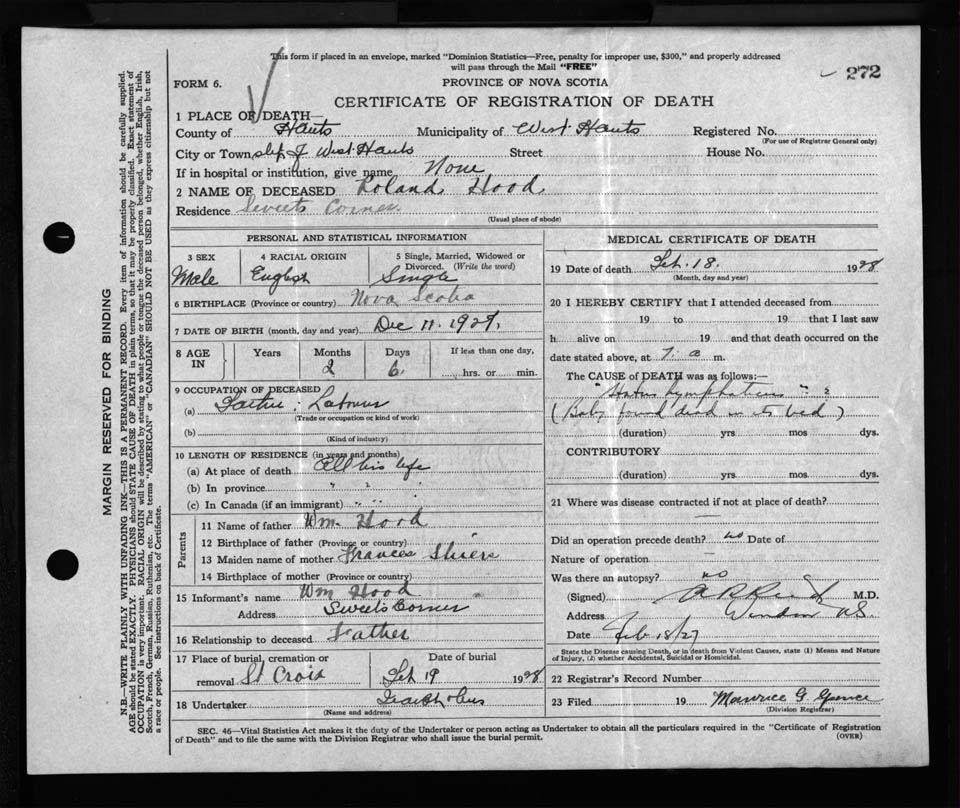 This form if placed in an envelope, marked "Dominion Statistics—Free, penalty for improper use, $300," and properly addressed
will pass through the Mail "FREE"
272
FORM 6.
PROVINCE OF NOVA SCOTIA
CERTIFICATE OF REGISTRATION OF DEATH
1 PLACE OF DEATH—
County of Hants Municipality of West Hants Registered No.
(For use of Registrar General only)
City or Town West Hants Street House No.
If in hospital or institution, give name None
2 NAME OF DECEASED Roland Hood
Residence Sweets Corner
(Usual place of abode)
PERSONAL AND STATISTICAL INFORMATION
3 SEX 4 RACIAL ORIGIN 5 Single, Married, Widowed or
Divorced. (Write the word)
Male English Single
6 BIRTHPLACE (Province or country) Nova Scotia
7 DATE OF BIRTH (month, day and year) Dec 11. 1927.
8 AGE IN Years Months Days If less than one day,
2 6 hrs. or min.
9 OCCUPATION OF DECEASED
(a) Father: Labourer
(Trade or occupation or kind of work)
(b)
(Kind of industry)
10 LENGTH OF RESIDENCE (in years and months)
(a) At place of death All his life
(b) In province " "
(c) In Canada (if an immigrant) " "
Parents
11 Name of father Wm. Hood
12 Birthplace of father (Province or country)
13 Maiden name of mother Frances
14 Birthplace of mother (Province or country)
15 Informant's name Wm Hood
Address Sweets Corner
16 Relationship to deceased Father
17 Place of burial, cremation or Date of burial
removal St Croix Feb 19 1928
18 Undertaker
(Name and address)
MEDICAL CERTIFICATE OF DEATH
19 Date of death Feb. 18. 1928
(Month, day and year)
20 I HEREBY CERTIFY that I attended deceased from
19 to 19 that I last saw
h alive on 19 and that death occurred on the
date stated above, at 7. a m.
The CAUSE of DEATH was as follows:—
"Status Lymphaticus"
(Baby found dead in its bed)
(duration) yrs. mos. dys.
CONTRIBUTORY
(duration) yrs. mos. dys.
21 Where was disease contracted if not at place of death?
Did an operation precede death? no Date of
Nature of operation
Was there an autopsy? no
(Signed) Reid M.D.
Address Windsor N.S.
Date Feb 18/27
State the Disease causing Death, or in death from Violent Causes, state (1) Means and Nature
of Injury, (2) whether Accidental, Suicidal or Homicidal.
22 Registrar's Record Number
23 Filed 19 Maurice G. Spence
(Division Registrar)
SEC. 46—Vital Statistics Act makes it the duty of the Undertaker or person acting as Undertaker to obtain all the particulars required in the "Certificate of Registration
of Death" and to file the same with the Division Registrar who shall issue the burial permit.
(OVER)
MARGIN RESERVED FOR BINDING
N.B.—WRITE PLAINLY WITH UNFADING INK—THIS IS A PERMANENT RECORD. Every item of information should be carefully supplied.
AGE should be stated EXACTLY. PHYSICIANS should STATE CAUSE OF DEATH in plain terms, so that it may be properly classified. Exact statement of
OCCUPATION is very important. RACIAL ORIGIN will be described by stating to what people or tongue the deceased person belonged, whether English, Irish,
Scotch, French, German, Russian, Ruthenian, etc. The terms "AMERICAN" or "CANADIAN" SHOULD NOT BE USED as they express citizenship but not
a race or people. See instructions on back of Certificate.